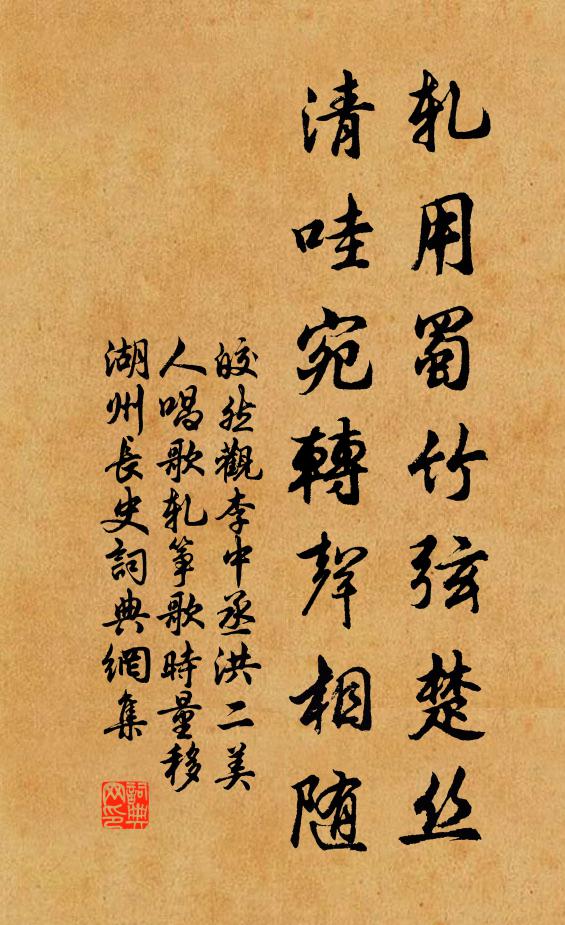 轧用蜀竹弦楚丝
清哇宛轉聲相随
皎然觀李中丞洪二美
人唱歌轧筝歌時量移
湖州長史詞典網集
詞典网印